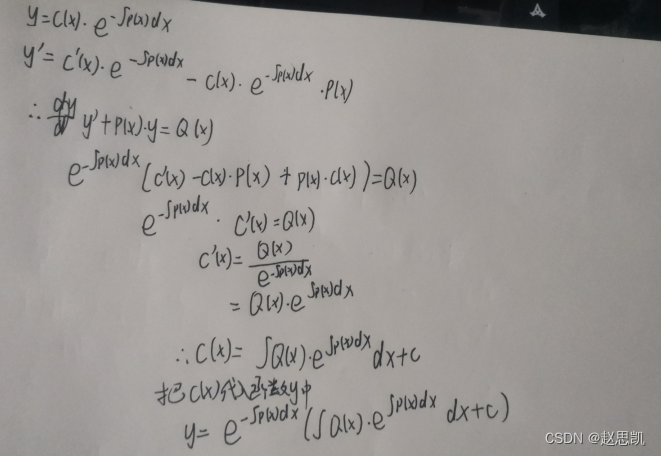 y=C(x)·e^{-∫p(x)dx}
y'=C'(x)·e^{-∫p(x)dx}-C(x)·e^{-∫p(x)dx}·P(x)
∴ y'+P(x)·y=Q(x)
e^{-∫p(x)dx}(C'(x)-C(x)·P(x)+P(x)·C(x))=Q(x)
e^{-∫p(x)dx}·C'(x)=Q(x)
C'(x)=\frac{Q(x)}{e^{-∫p(x)dx}}
=Q(x)·e^{∫p(x)dx}
∴C(x)=∫Q(x)·e^{∫p(x)dx}dx+C
把C(x)代入函数y中
y=e^{-∫p(x)dx}(∫Q(x)·e^{∫p(x)dx}dx+C)
CSDN @赵思凯